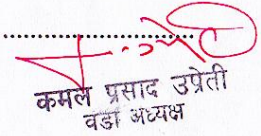 कमल प्रसाद उप्रेती
वडा अध्यक्ष